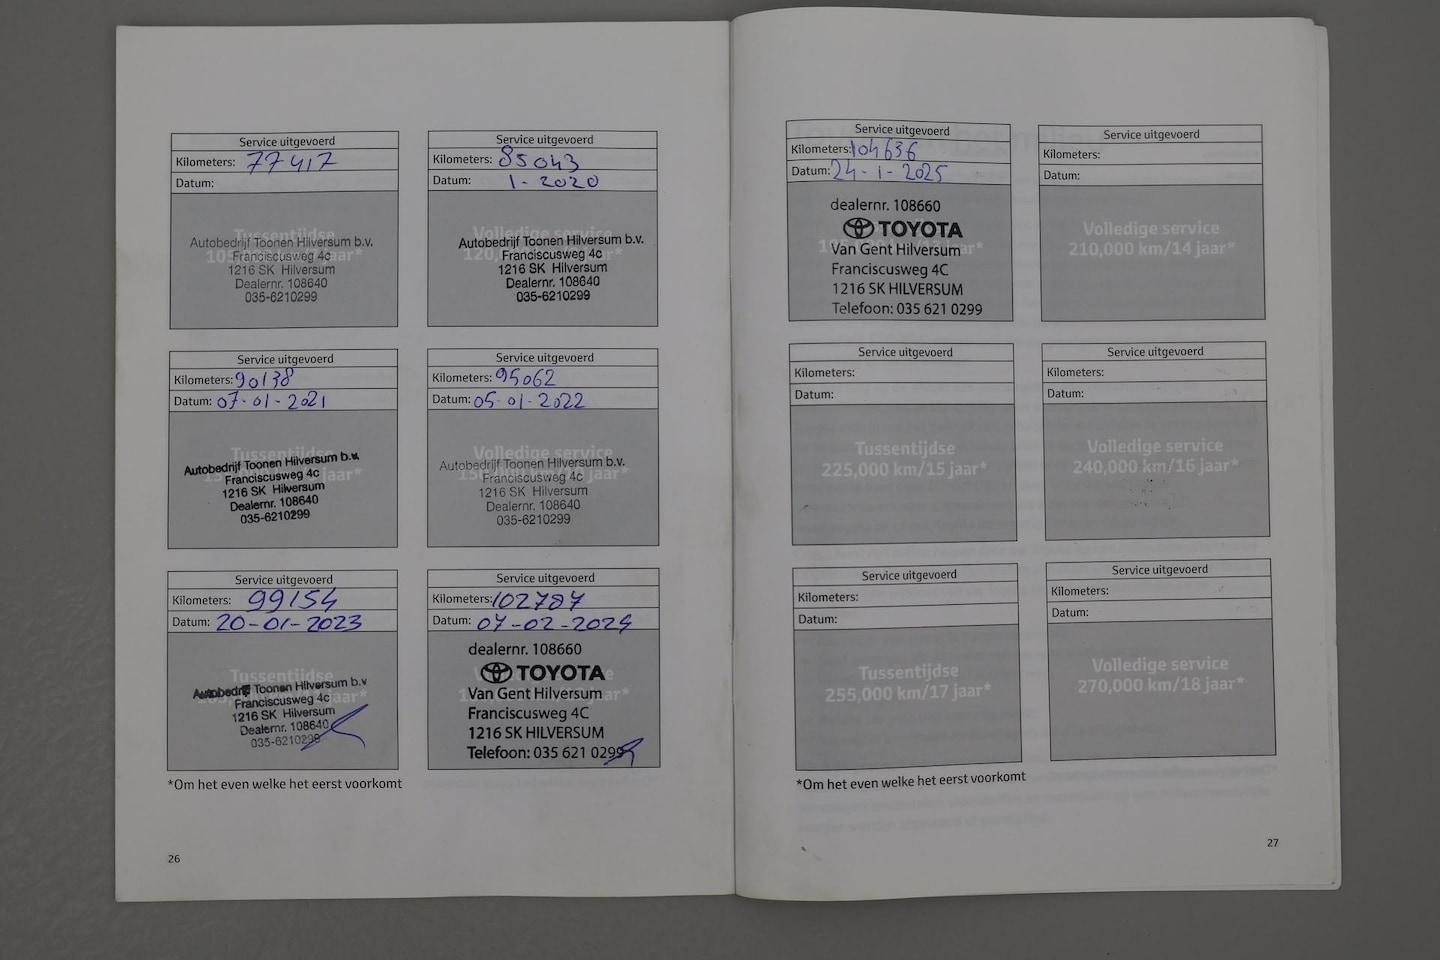 Service uitgevoerd
Kilometers: 77417
Datum:
Tussentijdse
Autobedrijf Toonen Hilversum b.v.
Franciscusweg 4c
1216 SK Hilversum
Dealernr. 108640
035-6210299
Service uitgevoerd
Kilometers: 85043
Datum: 1-2020
Volledige service
Autobedrijf Toonen Hilversum b.v.
Franciscusweg 4c
1216 SK Hilversum
Dealernr. 108640
035-6210299
Service uitgevoerd
Kilometers: 90138
Datum: 07-01-2021
Tussentijdse
Autobedrijf Toonen Hilversum b.v.
Franciscusweg 4c
1216 SK Hilversum
Dealernr. 108640
035-6210299
Service uitgevoerd
Kilometers: 95062
Datum: 05-01-2022
Volledige service
Autobedrijf Toonen Hilversum b.v.
Franciscusweg 4c
1216 SK Hilversum
Dealernr. 108640
035-6210299
Service uitgevoerd
Kilometers: 99154
Datum: 20-01-2023
Tussentijdse
Autobedrijf Toonen Hilversum b.v
Franciscusweg 4c
1216 SK Hilversum
Dealernr. 108640
035-6210299
Service uitgevoerd
Kilometers: 102787
Datum: 07-02-2024
dealernr. 108660
TOYOTA
Van Gent Hilversum
Franciscusweg 4C
1216 SK HILVERSUM
Telefoon: 035 621 0299
*Om het even welke het eerst voorkomt
26
Service uitgevoerd
Kilometers: 104636
Datum: 24-1-2025
dealernr. 108660
TOYOTA
Van Gent Hilversum
Franciscusweg 4C
1216 SK HILVERSUM
Telefoon: 035 621 0299
Service uitgevoerd
Kilometers:
Datum:
Volledige service
210,000 km/14 jaar*
Service uitgevoerd
Kilometers:
Datum:
Tussentijdse
225,000 km/15 jaar*
Service uitgevoerd
Kilometers:
Datum:
Volledige service
240,000 km/16 jaar*
Service uitgevoerd
Kilometers:
Datum:
Tussentijdse
255,000 km/17 jaar*
Service uitgevoerd
Kilometers:
Datum:
Volledige service
270,000 km/18 jaar*
*Om het even welke het eerst voorkomt
27